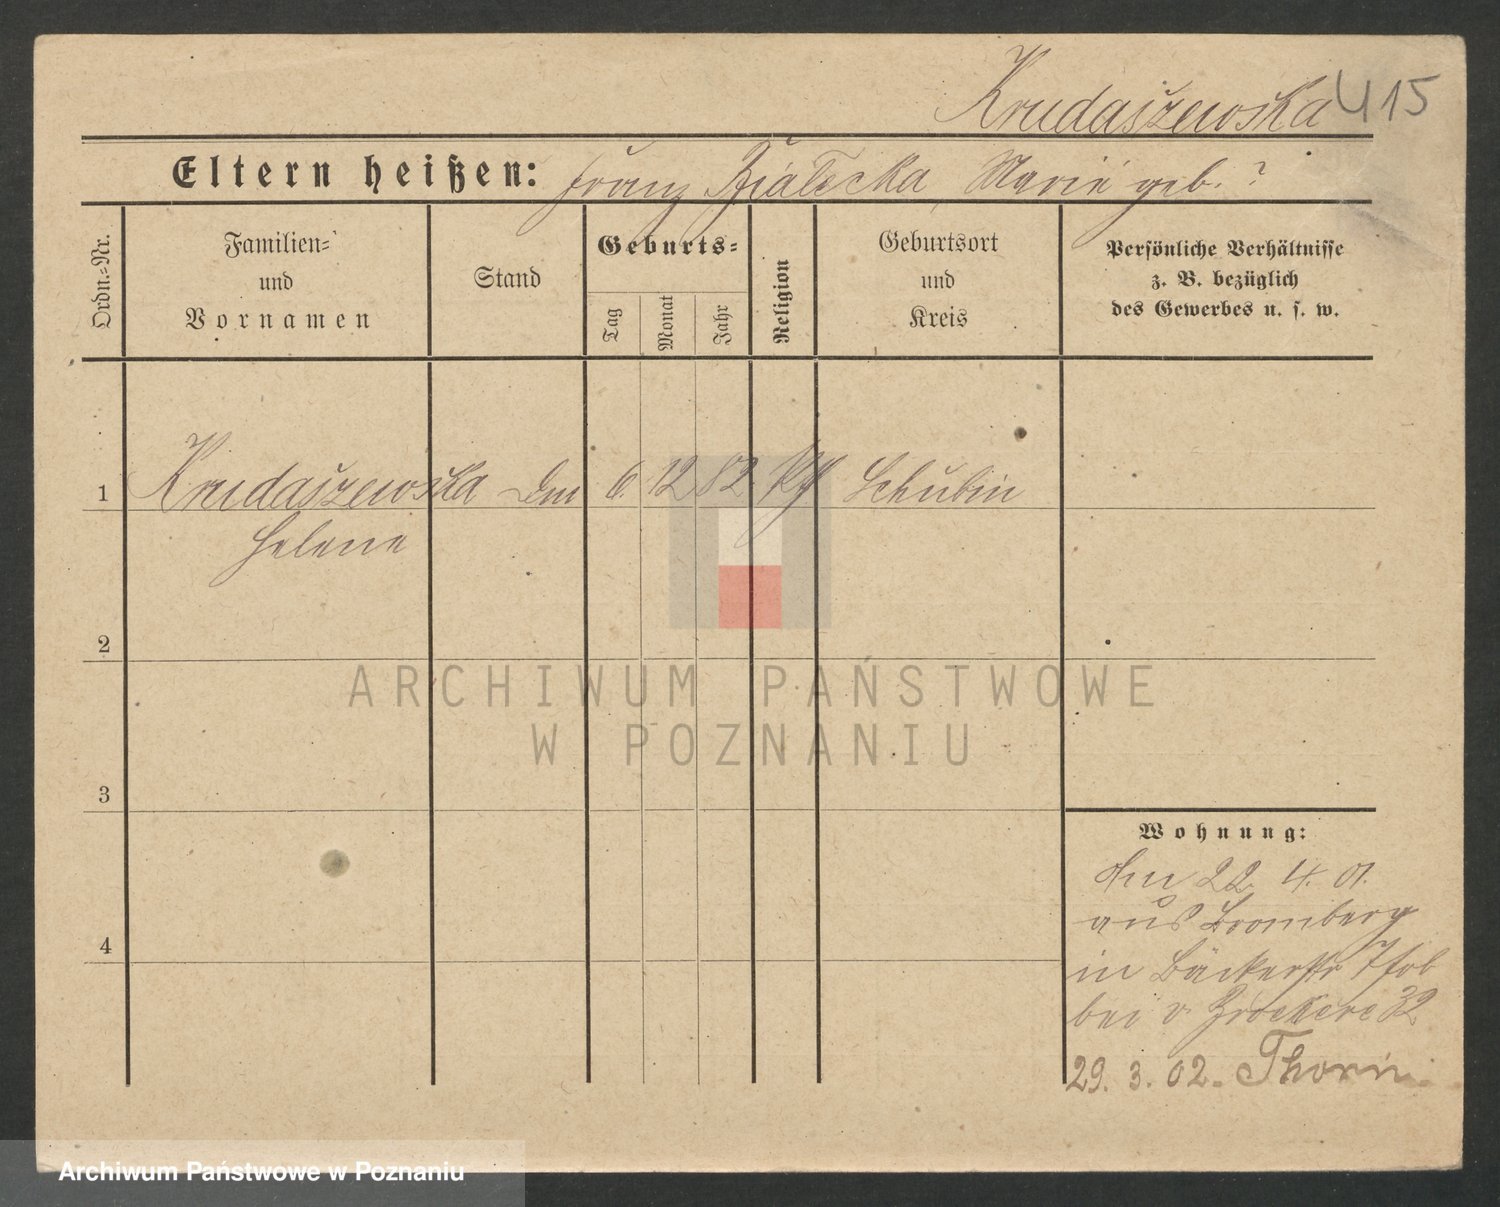 Krudaszewska 415
Eltern heißen: Franz Bialecka, Marie geb. ?
Ordn.-Nr.
Familien-
und
Vornamen
Stand
Geburts-
Tag
Monat
Jahr
Religion
Geburtsort
und
Kreis
Persönliche Verhältnisse
z. B. bezüglich
des Gewerbes u. s. w.
1 Krudaszewska 6. 12 82 Schubin
Helene
2
3
4
Wohnung:
22. 4. 01.
aus Bromberg
in Bäckerstr
bei v. 32
29. 3. 02. Thorn.
ARCHIWUM PAŃSTWOWE
W POZNANIU
Archiwum Państwowe w Poznaniu